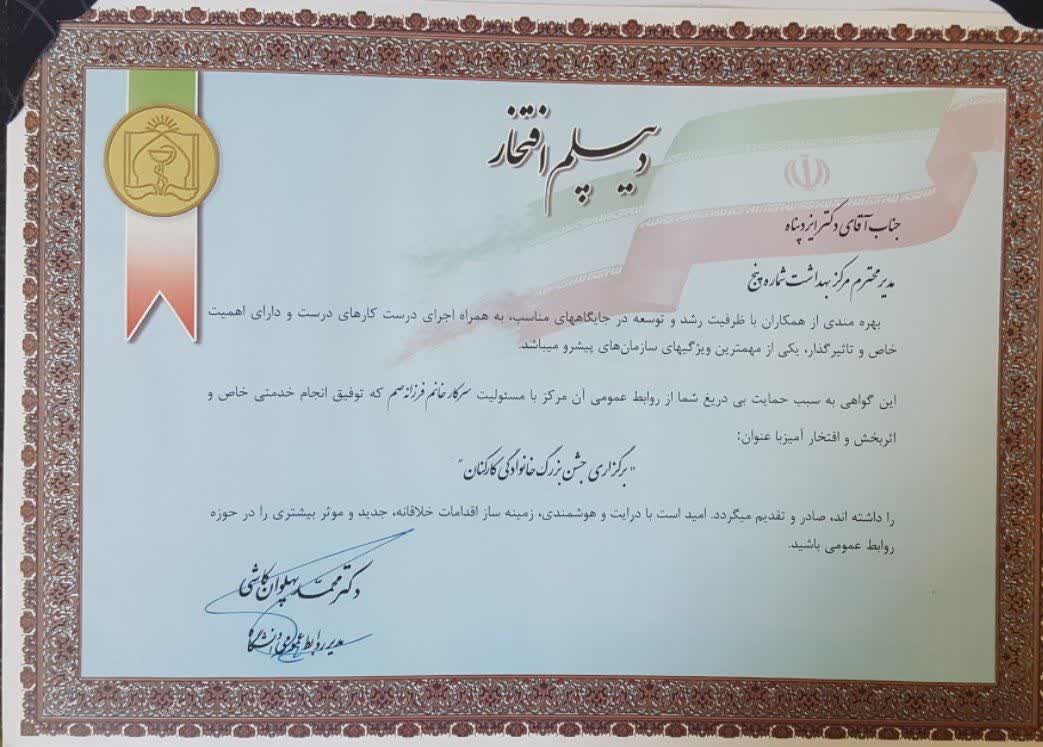 دیپلم افتخار
جناب آقای دکتر ایزدپناه
مدیر محترم مرکز بهداشت شماره پنج
بهره مندی از همکاران با ظرفیت رشد و توسعه در جایگاههای مناسب، به همراه اجرای درست کارهای درست و دارای اهمیت
خاص و تاثیرگذار، یکی از مهمترین ویژگیهای سازمان‌های پیشرو میباشد.
این گواهی به سبب حمایت بی دریغ شما از روابط عمومی آن مرکز با مسئولیت سرکار خانم فرزانه صم که توفیق انجام خدمتی خاص و
اثربخش و افتخار آمیزبا عنوان:
"برگزاری جشن بزرگ خانوادگی کارکنان"
را داشته اند، صادر و تقدیم میگردد. امید است با درایت و هوشمندی، زمینه ساز اقدامات خلاقانه، جدید و موثر بیشتری را در حوزه
روابط عمومی باشید.
دکتر محمد پهلوان کاشی
مدیر روابط عمومی دانشگاه